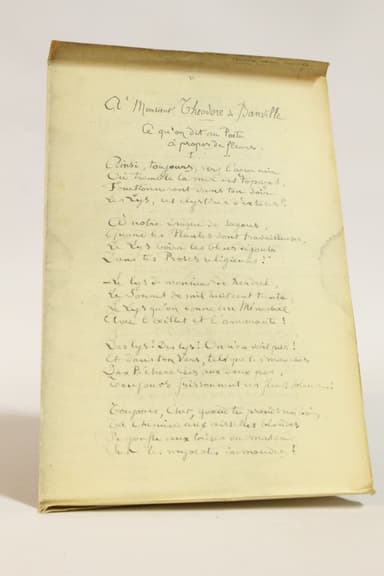 A' Monsieur Théodore de Banville
Ce qu'on dit au Poète
à propos de fleurs.
I
Ainsi, toujours, vers l'azur noir
Où tremble la mer des topazes,
Fonctionneront dans ton soir
Les Lys, ces clystères d'extases!
A notre époque de sagous,
Quand les Plantes sont travailleuses,
Le Lys boira les bleus dégoûts
Dans tes Proses religieuses!
— Le lys de monsieur de Kerdrel,
Le Sonnet de mil huit cent trente,
Le Lys qu'on donne au Ménestrel
Avec l'œillet et l'amarante!
Des lys! Des lys! On n'en voit pas!
Et dans ton Vers, tel que les manches
Des Pécheresses aux doux pas,
Toujours frissonnent ces fleurs blanches!
Toujours, Cher, quand tu prends un bain,
Ta Chemise aux aisselles blondes
Se gonfle aux brises du matin
Sur les myosotis immondes!